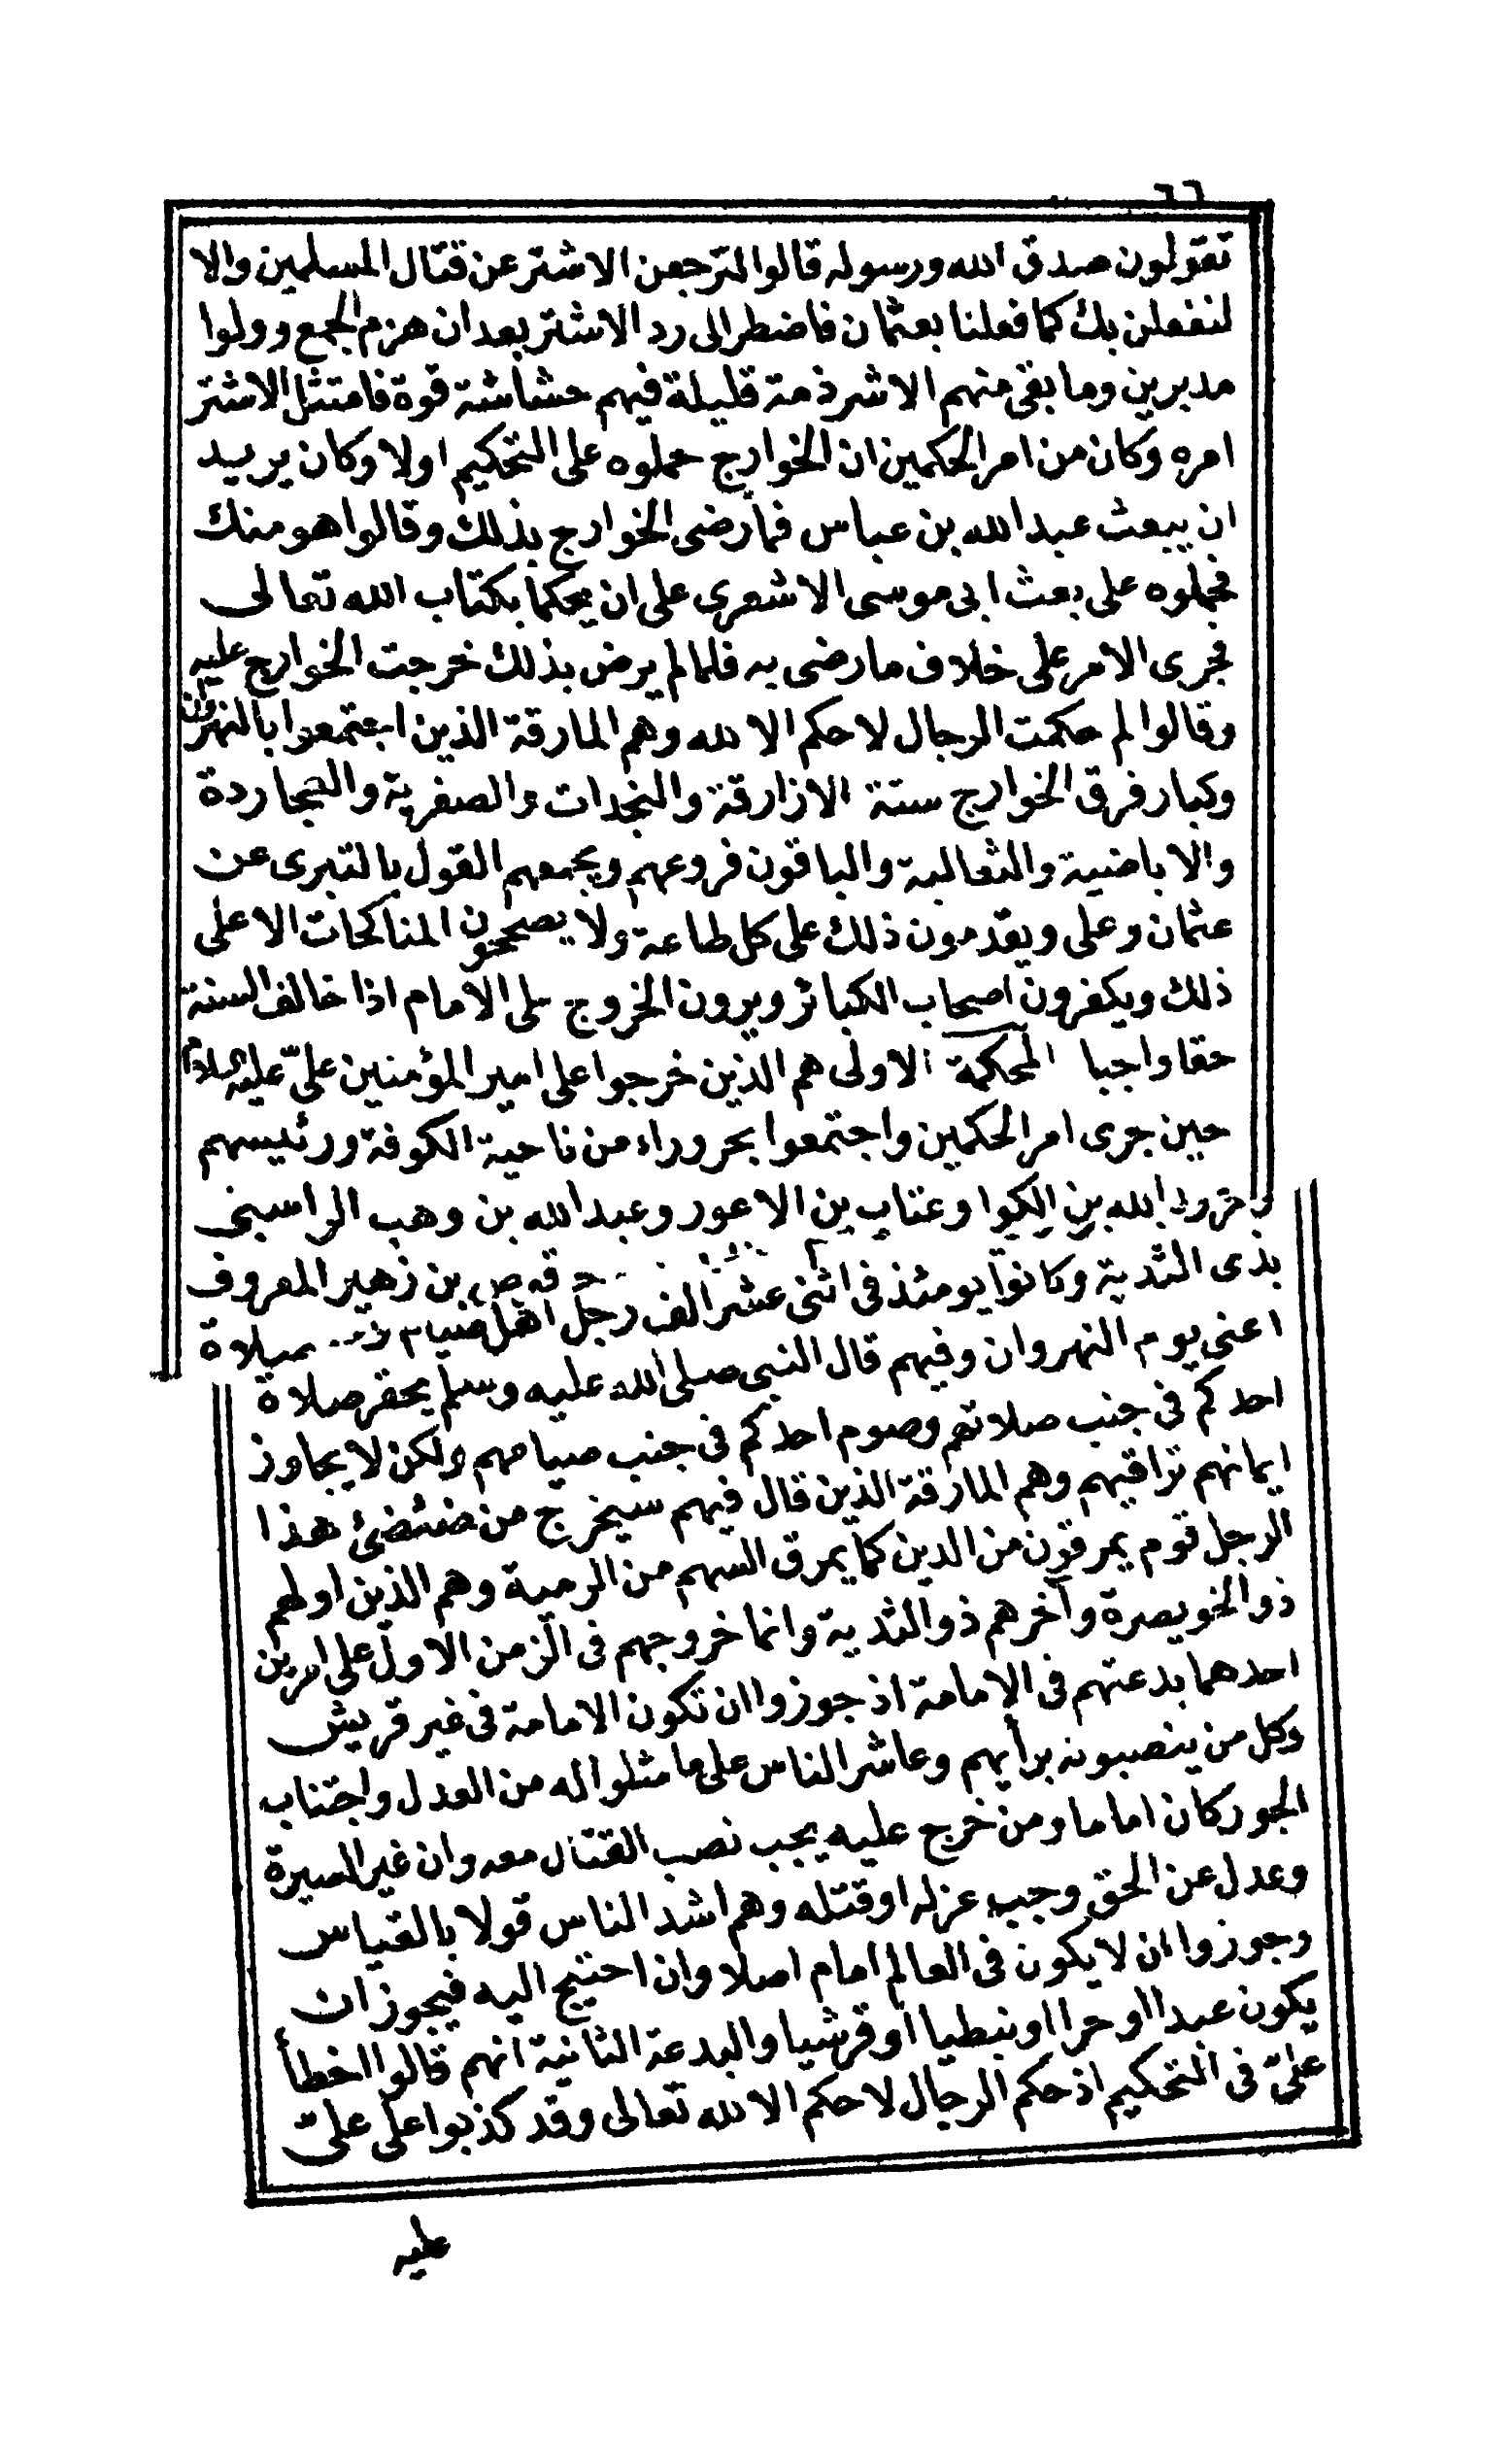 ٦٦
تقولون صدق الله ورسوله قالوا لترجعن الاشتر عن قتال المسلمين والا
لنفعلن بك كما فعلنا بعثمان فاضطر الى رد الاشتر بعد ان هزم الجمع وولوا
مدبرين وما بقى منهم الا شرذمة قليلة فيهم حشاشة قوة فامتثل الاشتر
امره وكان من امر الحكمين ان الخوارج حملوه على التحكيم اولا وكان يريد
ان يبعث عبد الله بن عباس فما رضى الخوارج بذلك وقالوا هو منك
فحملوه على بعث ابى موسى الاشعرى على ان يحكما بكتاب الله تعالى
فجرى الامر على خلاف ما رضى به فلما لم يرض بذلك خرجت الخوارج عليه
وقالوا لم حكمت الرجال لا حكم الا لله وهم المارقة الذين اجتمعوا بالنهروان
وكبار فرق الخوارج ستة الازارقة والنجدات والصفرية والعجاردة
والاباضية والثعالبة والباقون فروعهم ويجمعهم القول بالتبرى عن
عثمان وعلى ويقدمون ذلك على كل طاعة ولا يصححون المناكحات الا على
ذلك ويكفرون اصحاب الكبائر ويرون الخروج على الامام اذا خالف السنة
حقا واجبا المحكمة الاولى هم الذين خرجوا على امير المؤمنين علىّ عليه السلام
حين جرى امر الحكمين واجتمعوا بحروراء من ناحية الكوفة ورئيسهم
الله بن الكوا وعتاب بن الاعور وعبد الله بن وهب الراسبى
حرقوص بن زهير المعروف
بذى الثدية وكانوا يومئذ فى اثنى عشر الف رجل اهل صيام وصلاة
اعنى يوم النهروان وفيهم قال النبى صلى الله عليه وسلم يحقر صلاة
احدكم فى جنب صلاتهم وصوم احدكم فى جنب صيامهم ولكن لا يجاوز
ايمانهم تراقيهم وهم المارقة الذين قال فيهم سيخرج من ضئضئ هذا
الرجل قوم يمرقون من الدين كما يمرق السهم من الرمية وهم الذين اولهم
ذو الخويصرة وآخرهم ذو الثدية وانما خروجهم فى الزمن الاول على امرين
احدهما بدعتهم فى الامامة اذ جوزوا ان تكون الامامة فى غير قريش
وكل من ينصبونه برأيهم وعاشر الناس على ما مثلوا له من العدل واجتناب
الجور كان اماما ومن خرج عليه يجب نصب القتال معه وان غير السيرة
وعدل عن الحق وجب عزله او قتله وهم اشد الناس قولا بالقياس
وجوزوا ان لا يكون فى العالم امام اصلا وان احتيج اليه فيجوز ان
يكون عبدا او حرا او نبطيا او قرشيا والبدعة الثانية انهم قالوا اخطأ
علىّ فى التحكيم اذ حكم الرجال لا حكم الا لله تعالى وقد كذبوا على علىّ
عليه